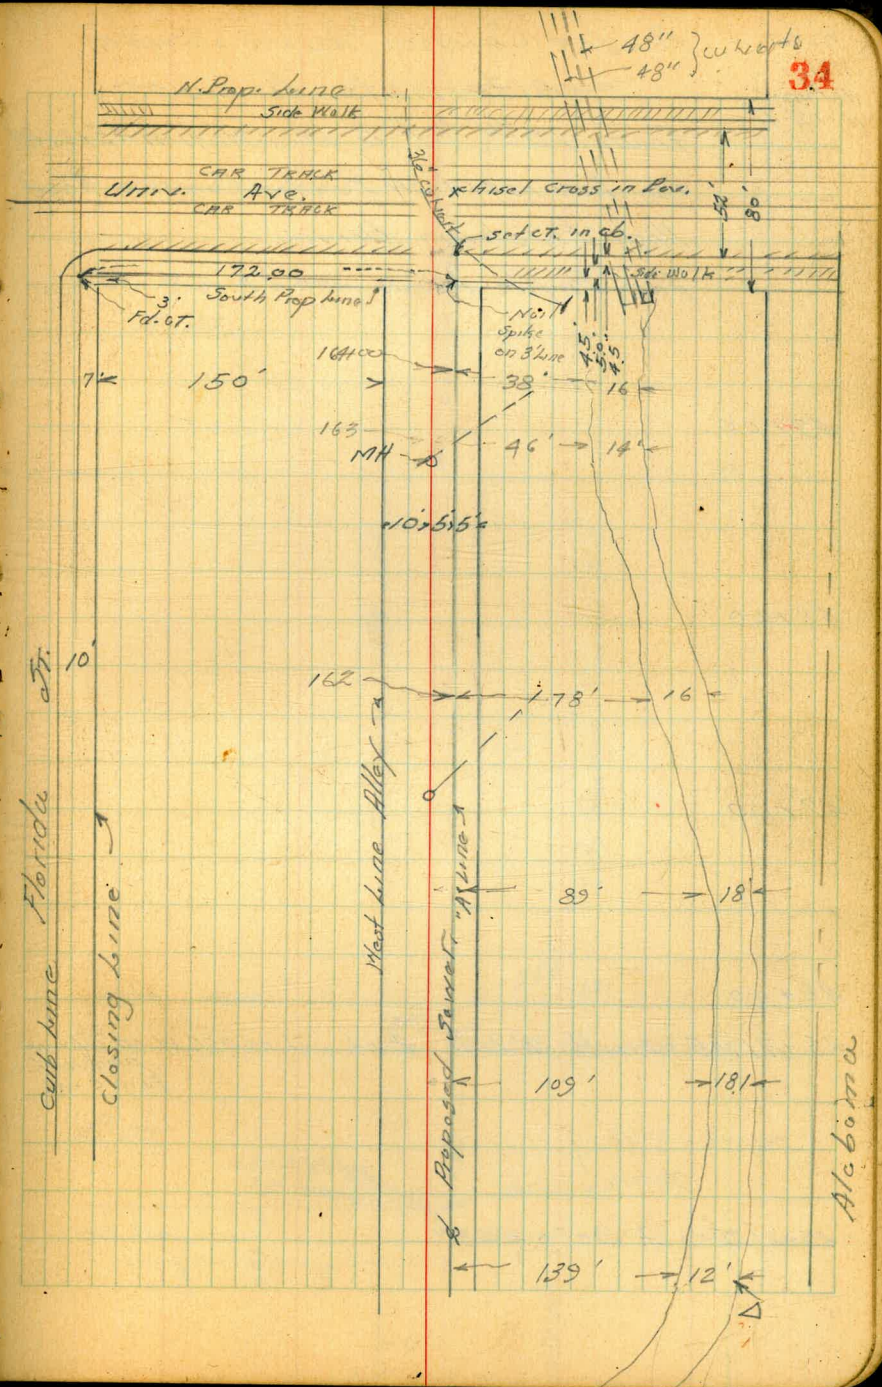 48"
48"
34
N. Prop. Line
Side Walk
CAR TRACK
Univ. Ave.
CAR TRACK
36" culvert
chisel Cross in Pav.
52'
80'
set cr. in cb.
172.00
Side Walk
South Prop Line
3'
Fd. cr.
Nail
Spike
on 3' Line
4.5'
5.0'
4.5
164+00
7'
150'
38'
16
163
MH
46'
14'
10' 5' 5'
10'
162
78'
16
Curb Line Florida St.
Closing Line
West Line Alley
Proposed Sewer, "A" Line
89'
18'
109'
18'
139'
12'
Alabama